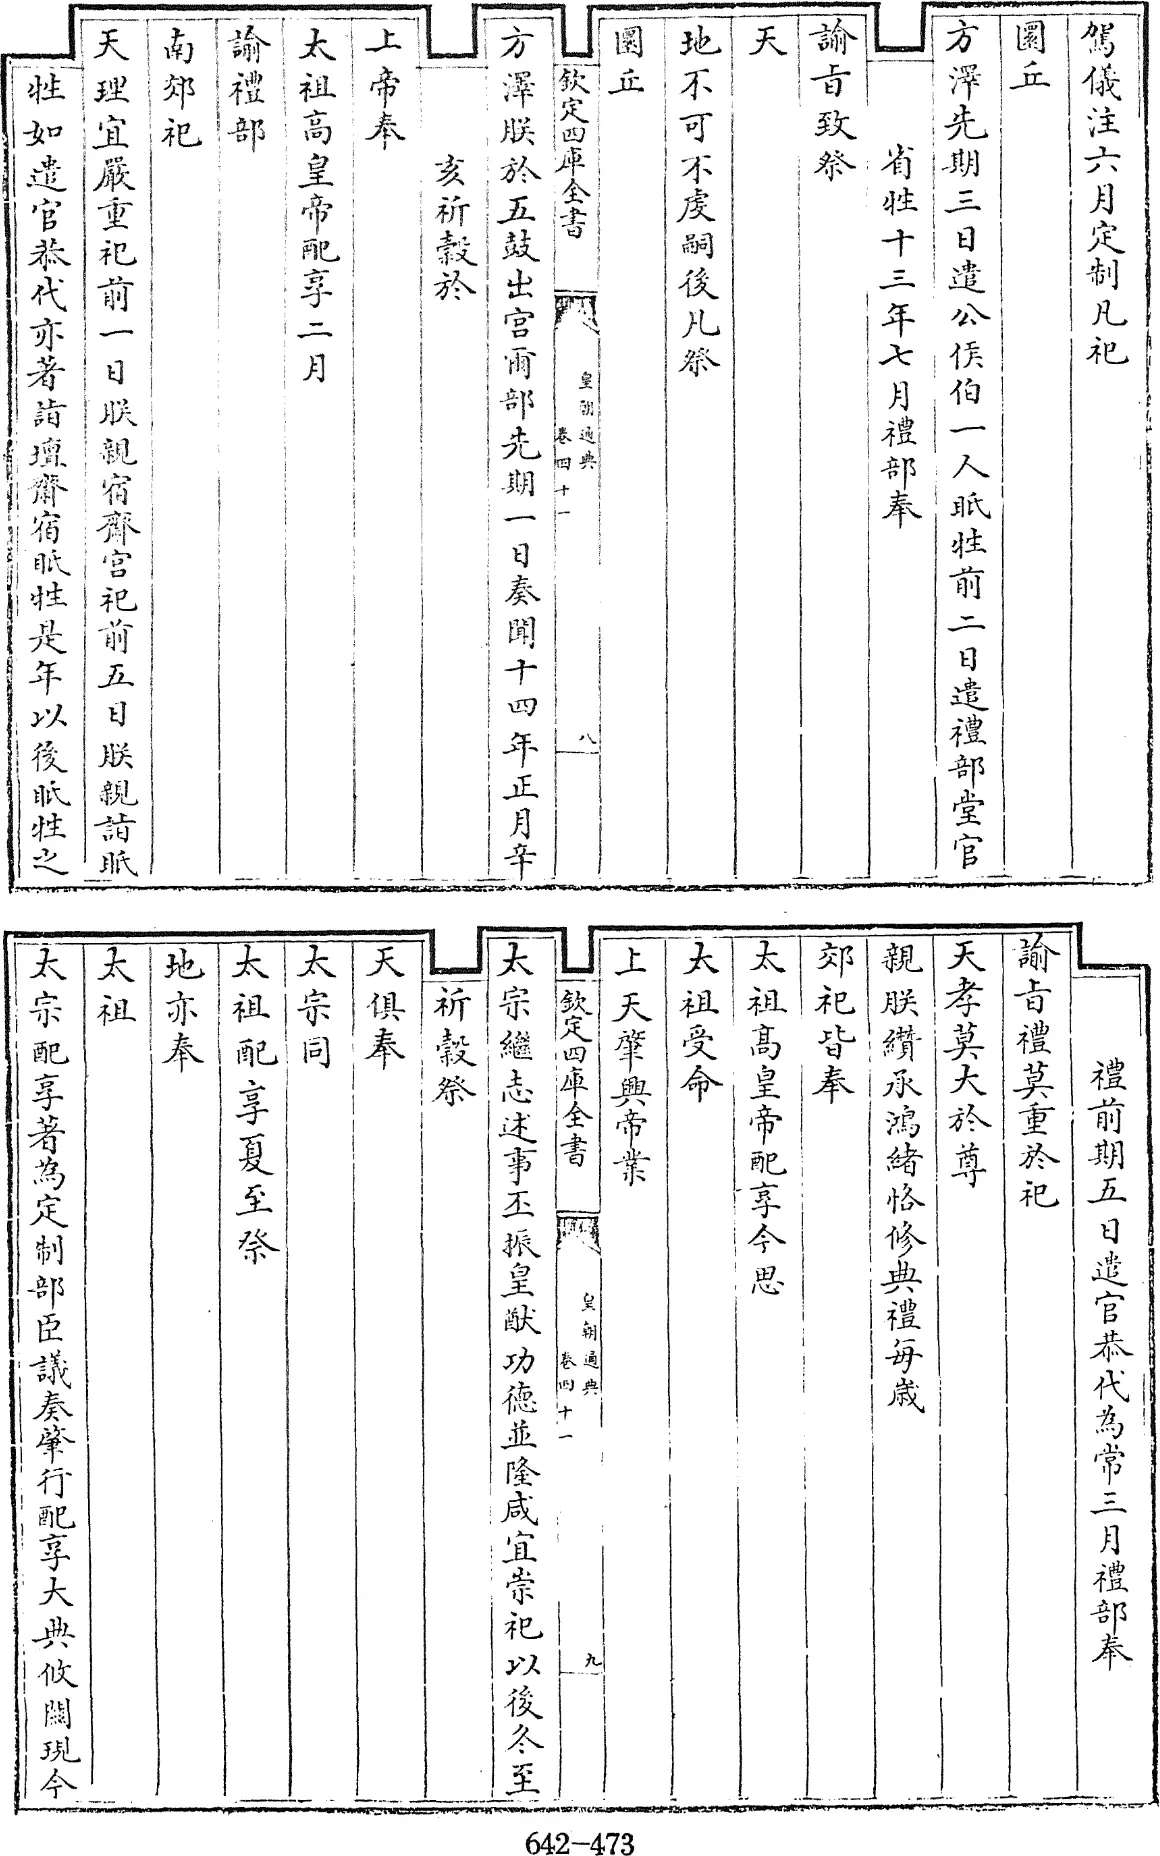 駕儀注六月定制凡祀
圜丘
方澤先期三日遣公侯伯一人眡牲前二日遣禮部堂官
省牲十三年七月禮部奉
諭旨致祭
天
地不可不虔嗣後凡祭
圜丘
欽定四庫全書
皇朝通典
卷四十一
八
方澤朕於五鼓出宮爾部先期一日奏聞十四年正月辛
亥祈穀於
上帝奉
太祖高皇帝配享二月
諭禮部
南郊祀
天理宜嚴重祀前一日朕親宿齋宮祀前五日朕親詣眡
牲如遣官恭代亦著詣壇齋宿眡牲是年以後眡牲之
禮前期五日遣官恭代為常三月禮部奉
諭旨禮莫重於祀
天孝莫大於尊
親朕纘承鴻緒恪修典禮每歲
郊祀皆奉
太祖高皇帝配享今思
太祖受命
上天肇興帝業
欽定四庫全書
皇朝通典
卷四十一
九
太宗繼志述事丕振皇猷功德並隆咸宜崇祀以後冬至
祈穀祭
天俱奉
太宗同
太祖配享夏至祭
地亦奉
太祖
太宗配享著為定制部臣議奏肇行配享大典攸關現今
642-473